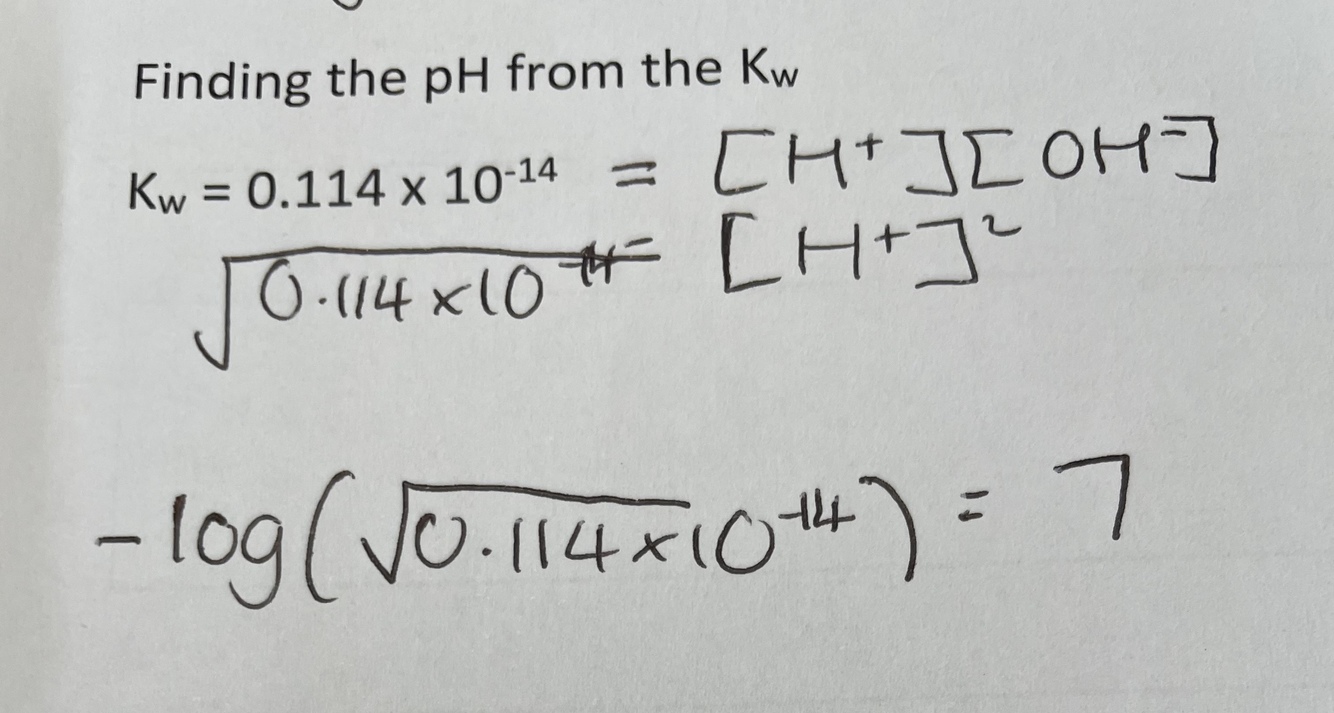 Finding the pH from the Kw
Kw = 0.114 x 10⁻¹⁴ = [H⁺][OH⁻]
√0.114 x 10⁻¹⁴ = [H⁺]²
-log(√0.114 x 10⁻¹⁴) = 7